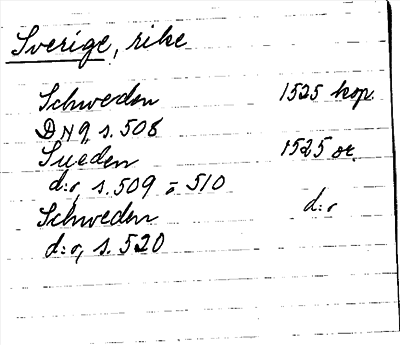 Sverige, rike
Schweden 1525 kop.
DN 9, s. 508
Sueden 1525 or.
d:o, s. 509 = 510
Schweden d:o
d:o, s. 520